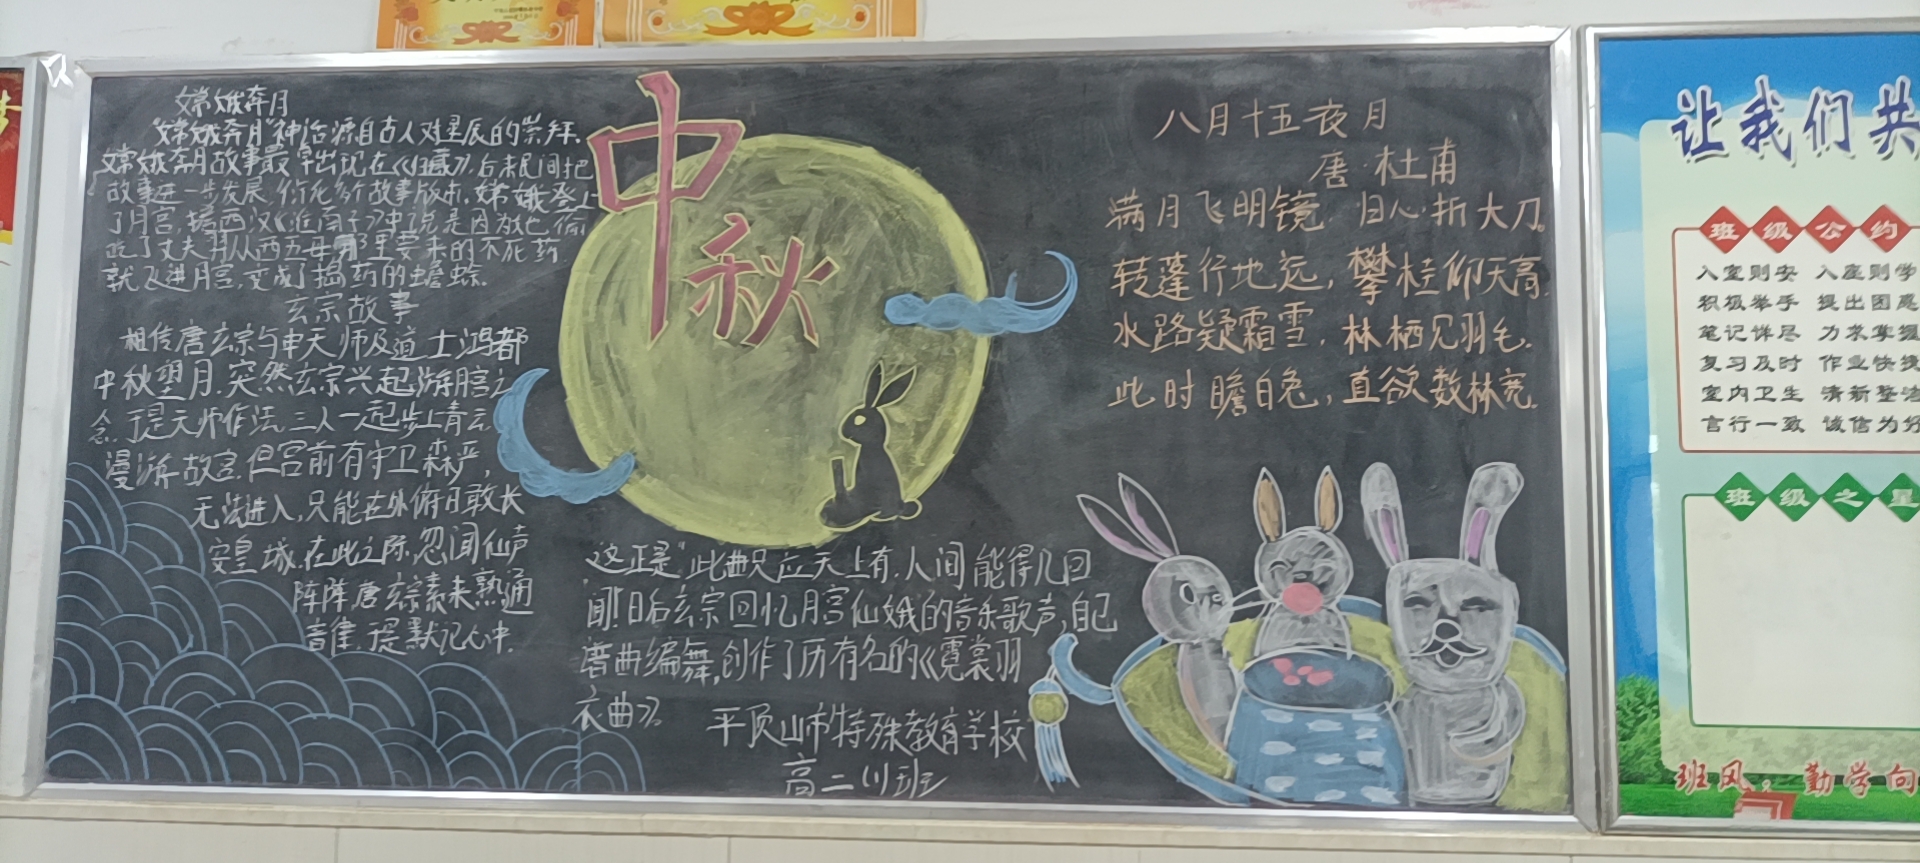 嫦娥奔月
"嫦娥奔月"神话源自古人对星辰的崇拜.
嫦娥奔月故事最早出现在《归藏》.后来民间把
故事进一步发展,衍化多个故事版本.嫦娥登上
了月宫,据西汉《淮南子》中说是因为她偷
吃了丈夫羿从西王母那里要来的不死药.
就飞进月宫,变成了捣药的蟾蜍.
玄宗故事
相传唐玄宗与申天师及道士鸿都
中秋望月.突然玄宗兴起游月宫之
念.于是天师作法.三人一起步上青云,
漫游故宫.但宫前有守卫森严,
无法进入,只能在外俯月敢长
安皇城.在此之际,忽闻仙声
阵阵唐玄宗素来熟通
音律.于是默记心中.
中秋
这正是"此曲只应天上有,人间能得几回
闻!日后玄宗回忆月宫仙娥的音乐歌声,自己
谱曲编舞,创作了历有名的《霓裳羽
衣曲》.
平顶山市特殊教育学校
高二(1)班
八月十五夜月
唐·杜甫
满月飞明镜 归心折大刀。
转蓬行地远,攀桂仰天高.
水路疑霜雪,林栖见羽毛.
此时瞻白兔,直欲数秋毫.
让我们共
班级公约
入室则安 入座则学
积极举手 提出困惑
笔记详尽 力求掌握
复习及时 作业快捷
室内卫生 清新整洁
言行一致 诚信为好
班级之星
班风:勤学向